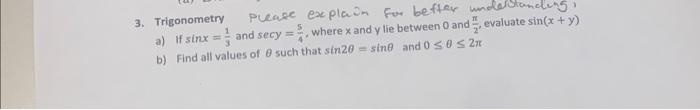 3. Trigonometry please explain for better understanding,
a) If sinx = 1/3 and secy = 5/4, where x and y lie between 0 and π/2, evaluate sin(x + y)
b) Find all values of θ such that sin2θ = sinθ and 0 ≤ θ ≤ 2π